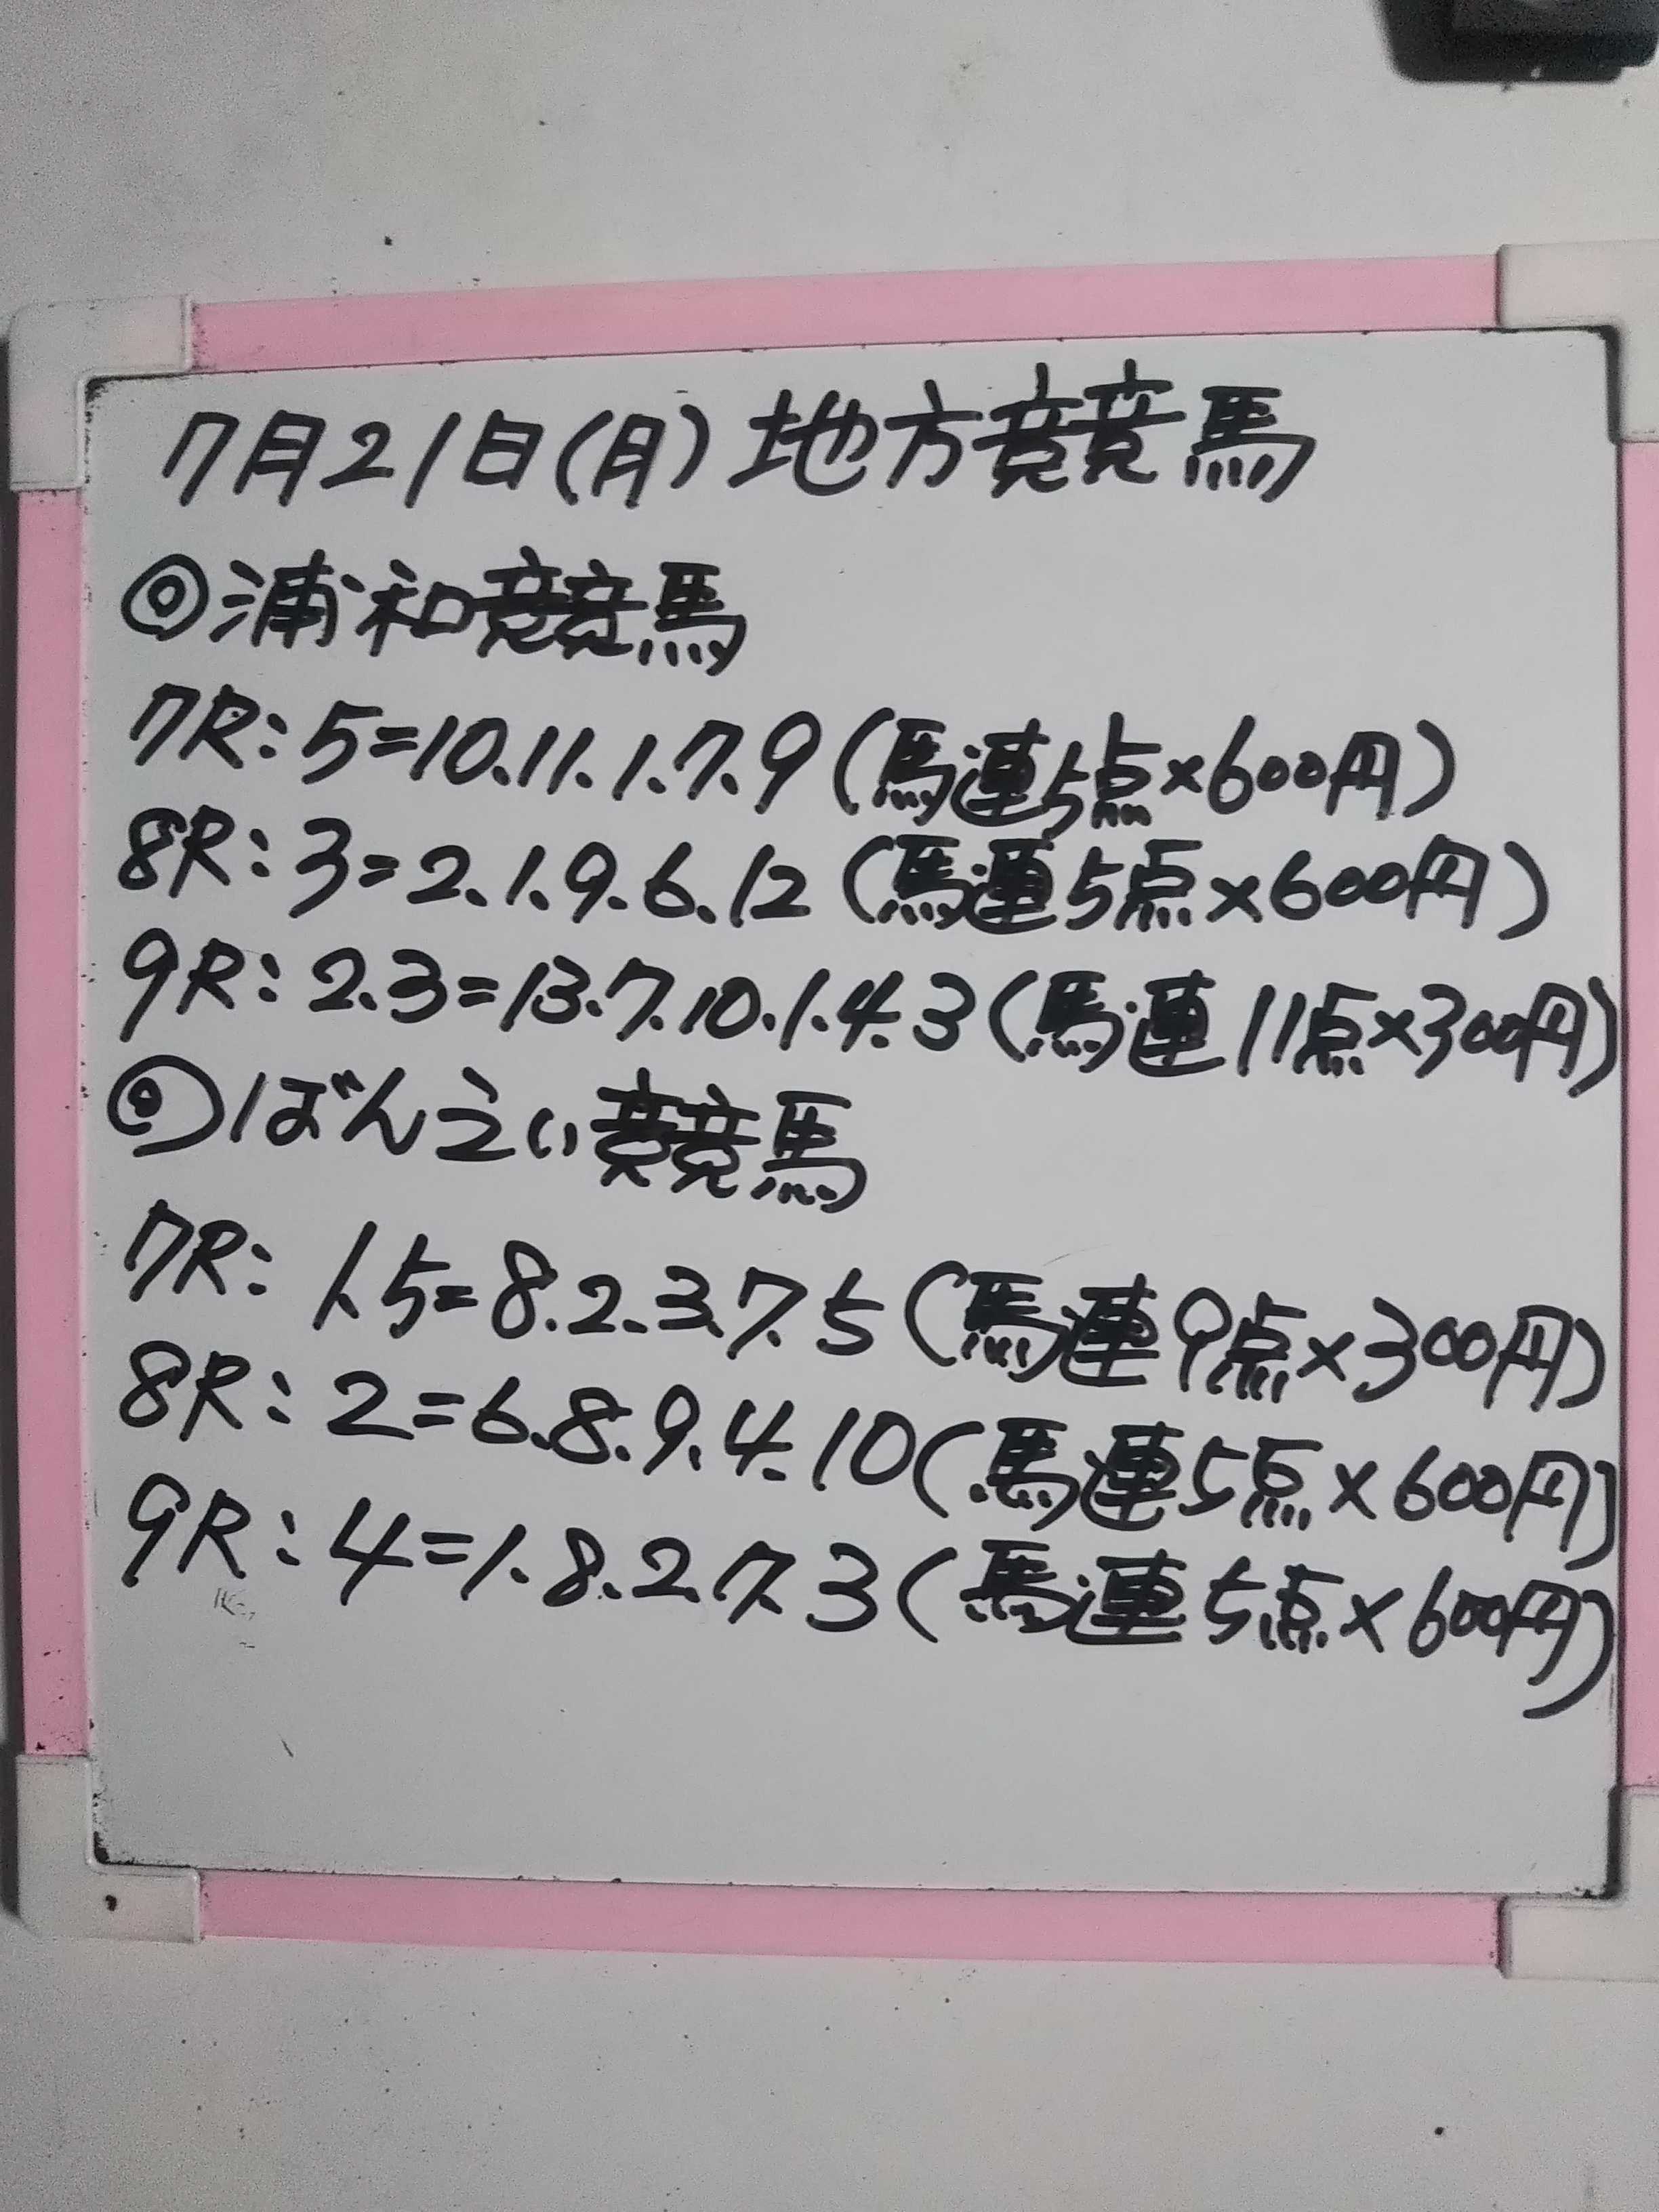 7月21日(月)地方競馬
◎浦和競馬
7R:5=10.11.1.7.9(馬連5点×600円)
8R:3=2.1.9.6.12(馬連5点×600円)
9R:2.3=13.7.10.1.4.3(馬連11点×300円)
◎ばんえい競馬
7R:1.5=8.2.3.7.5(馬連9点×300円)
8R:2=6.8.9.4.10(馬連5点×600円)
9R:4=1.8.2.7.3(馬連5点×600円)